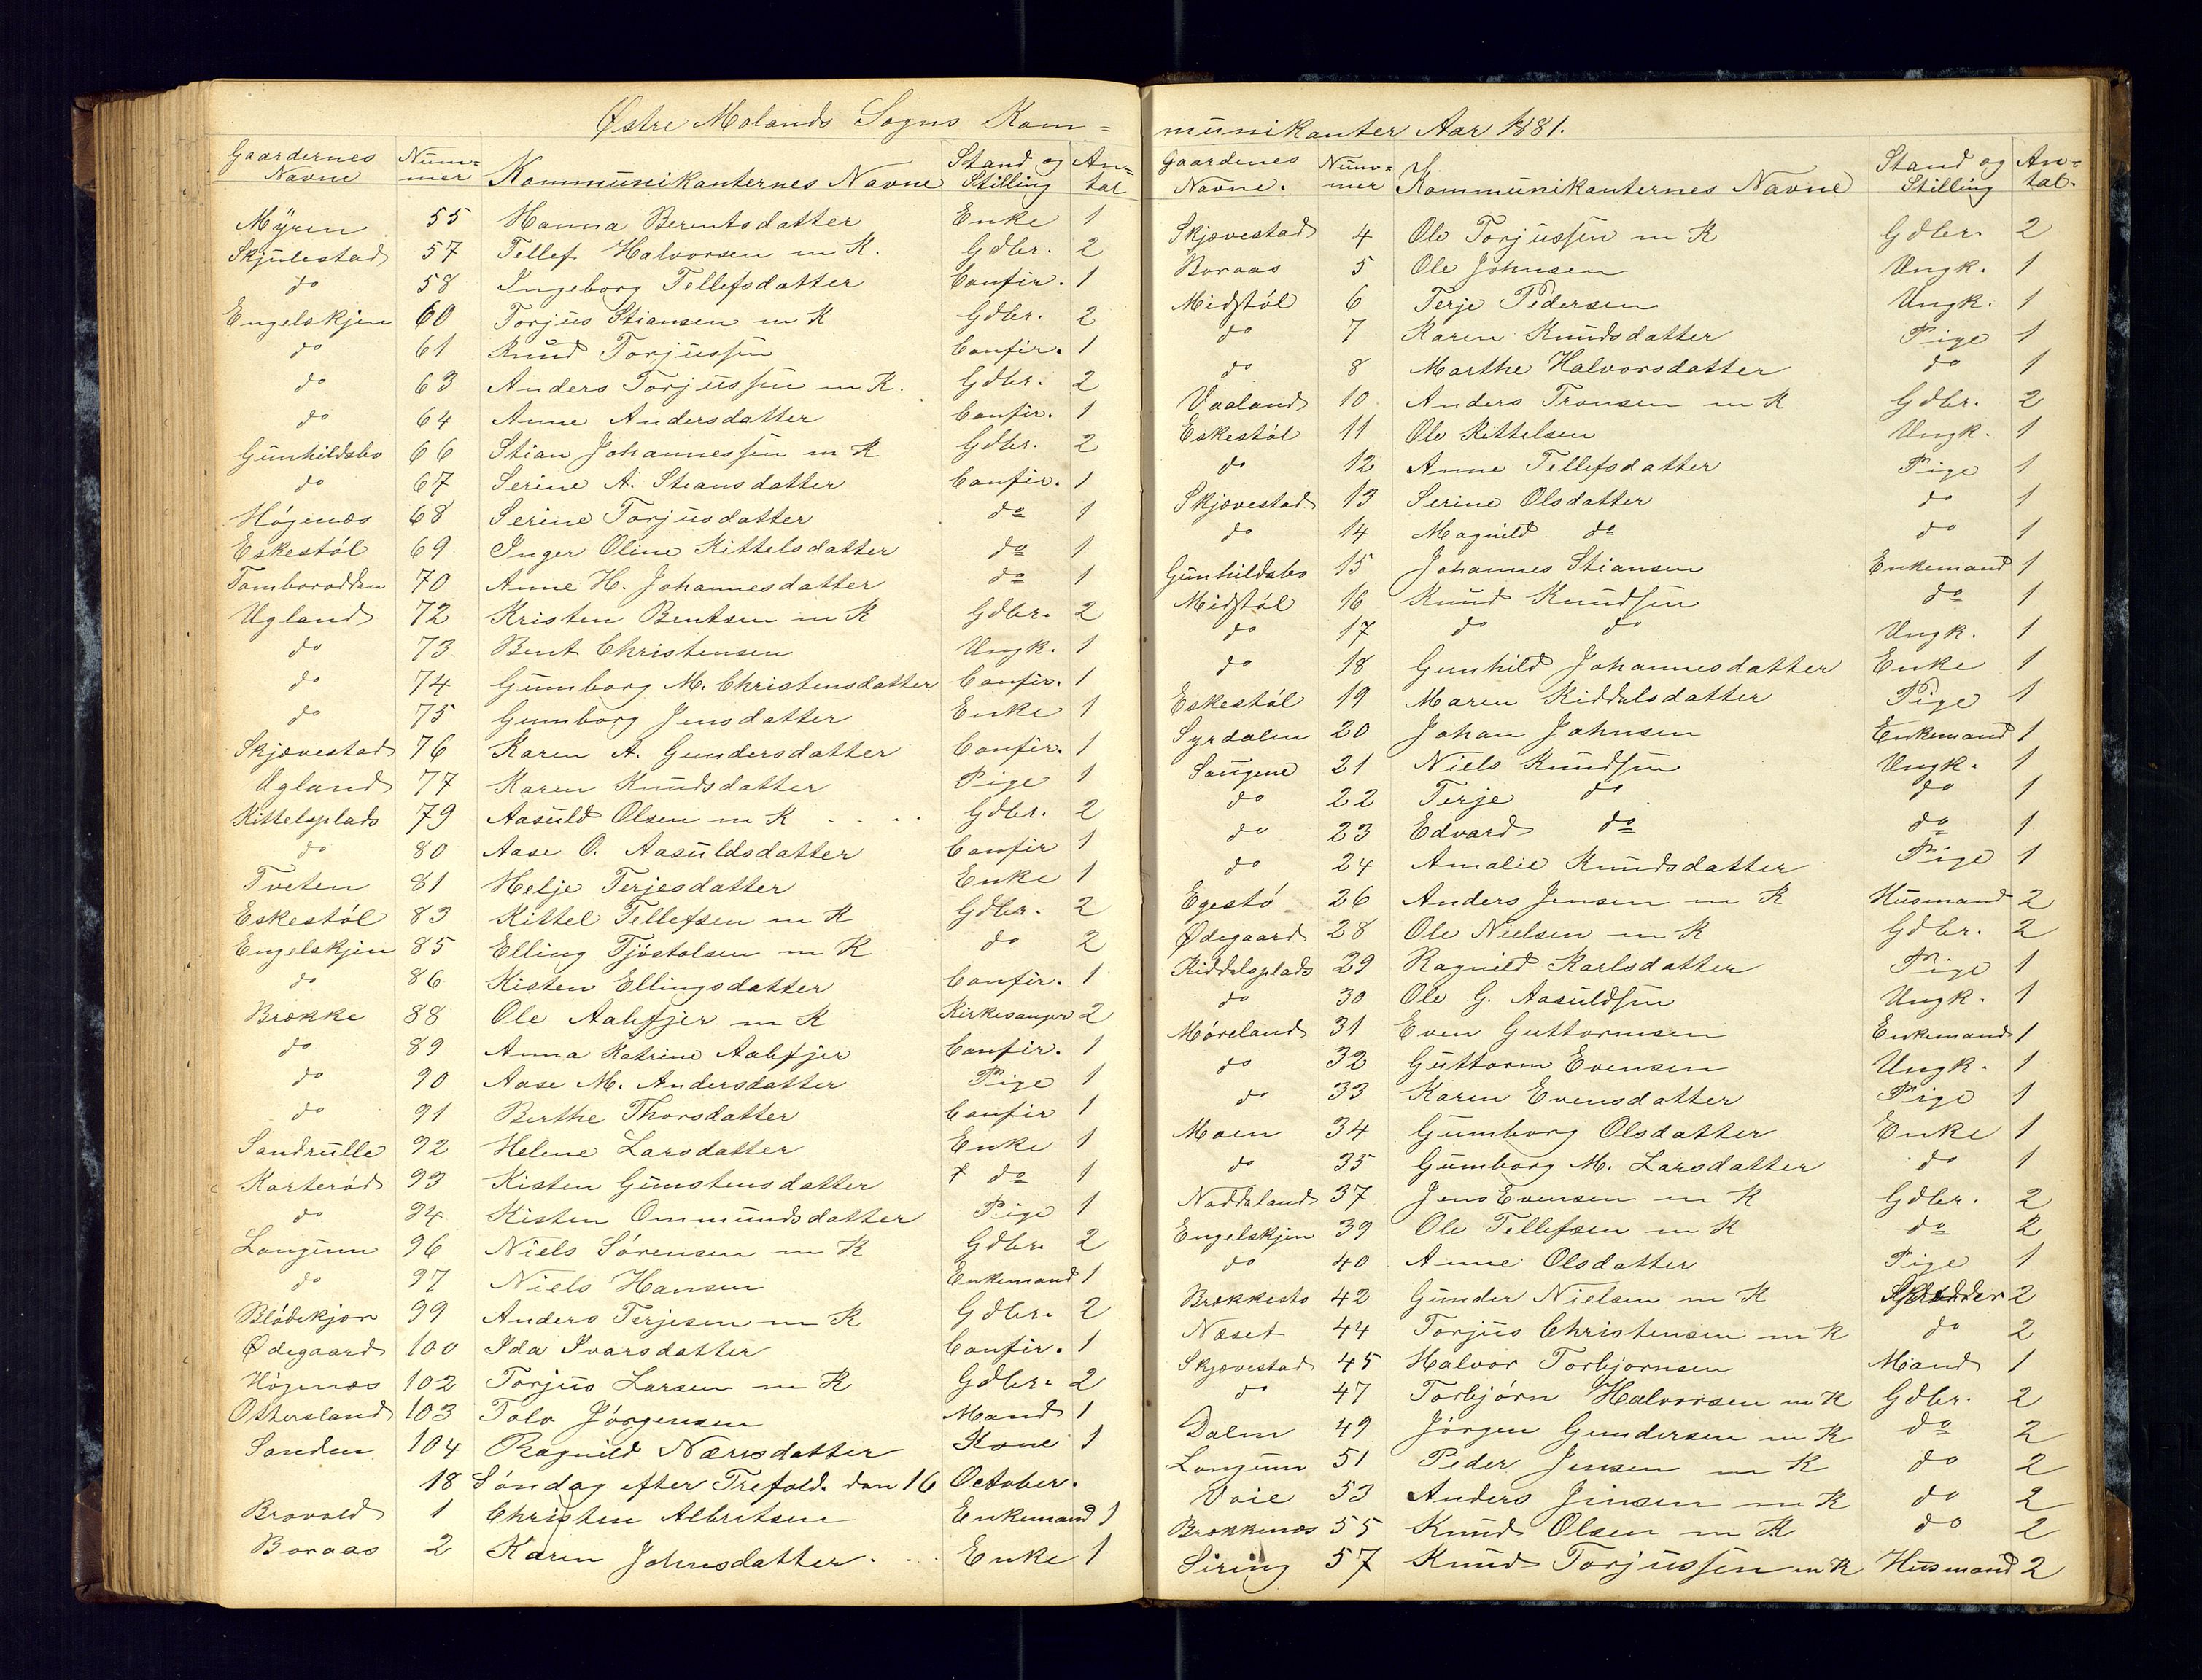 Østre Molands Sogns Kom=
Gaardernes Navne | Num=mer | Kommunikanternes Navne | Stand og Stilling | An=tal
Myren 55 Hanna Berentsdatter Enke 1
Skjulestad 57 Tellef Halvorsen m K. Gdbr. 2
do 58 Ingeborg Tellefsdatter Confir. 1
Engelskjen 60 Torjus Stiansen m K Gdbr. 2
do 61 Knud Torjussen Confir. 1
do 63 Anders Torjussen m K. Gdbr. 2
do 64 Anne Andersdatter Confir. 1
Gunhildsbo 66 Stian Johannessen m K Gdbr. 2
do 67 Serine A. Stiansdatter Confir. 1
Högenæs 68 Serine Torjusdatter do 1
Eskestöl 69 Inger Oline Kittelsdatter do 1
Tamborodden 70 Anne H. Johannesdatter do 1
Ugland 72 Kristen Bentsen m K Gdbr. 2
do 73 Bent Christensen Ungk. 1
do 74 Gumborg M. Christensdatter Confir. 1
do 75 Gumborg Jensdatter Enke 1
Skjævestad 76 Karen A. Gundersdatter Confir. 1
Ugland 77 Karen Knudsdatter Pige 1
Kittelsplads 79 Aasuld Olsen m K Gdbr. 2
do 80 Aase O. Aasuldsdatter Confir 1
Tveten 81 Helje Terjesdatter Enke 1
Eskestöl 83 Kittel Tellefsen m K Gdbr. 2
Engelskjen 85 Elling Tjöstolsen m K do 2
do 86 Kisten Ellingsdatter Confir. 1
Brække 88 Ole Aabøjer m K Kirkesanger 2
do 89 Anna Katrine Confir. 1
do 90 Aase M. Andersdatter Pige 1
do 91 Berthe Thorsdatter Confir 1
Sandrulle 92 Helene Larsdatter Enke 1
Karteröd 93 Kisten Gunstensdatter do 1
do 94 Kisten Ommundsdatter Pige 1
Langum 96 Niels Sörensen m K Gdbr. 2
do 97 Niels Hansen Enkemand 1
Blödekjær 99 Anders Terjesen m K Gdbr. 2
Ødegaard 100 Ida Ivarsdatter Confir. 1
Högenæs 102 Torjus Larsen m K Gdbr. 2
Ottersland 103 Talv Jörgensen Mand 1
Sanden 104 Ragnild Næridatter Kone 1
18 Söndag efter Trefold. den 16 October.
Bravold 1 Christen Albritsen Enkemand 1
Boraas 2 Karen Johnsdatter Enke 1
munikanter Aar 1881.
Gaardenes Navne. | Num=mer | Kommunikanternes Navne | Stand og Stilling | An=tal.
Skjævestad 4 Ole Torjussen m K Gdbr. 2
Boraas 5 Ole Johnsen Ungk. 1
Midstöl 6 Terje Pedersen Ungk. 1
do 7 Karen Knudsdatter Pige 1
do 8 Marthe Halvorsdatter do 1
Vaaland 10 Anders Tronsen m K Gdbr. 2
Eskestöl 11 Ole Kittelsen Ungk. 1
do 12 Anne Tellefsdatter Pige 1
Skjævestad 13 Serine Olsdatter do 1
do 14 Magnild do do 1
Gunhildsbo 15 Johannes Stiansen Enkemand 1
Midstöl 16 Knud Knudsen do 1
do 17 do do Ungk. 1
do 18 Gunhild Johannesdatter Enke 1
Eskestöl 19 Maren Kiddelsdatter Pige 1
Syrdalen 20 Johan Johnsen Enkemand 1
Saugene 21 Niels Knudsen Ungk. 1
do 22 Terje do do 1
do 23 Edvard do do 1
do 24 Amalie Knudsdatter Pige 1
Egestö 26 Anders Jensen m K Husmand 2
Ødegaard 28 Ole Nielsen m K Gdbr. 2
Kiddelsplads 29 Ragnild Karlsdatter Pige 1
do 30 Ole G. Aasuldsen Ungk. 1
Möreland 31 Even Guttormsen Enkemand 1
do 32 Guttorm Evensen Ungk. 1
do 33 Karen Evensdatter Pige 1
Moen 34 Gumborg Olsdatter Enke 1
do 35 Gumborg M. Larsdatter do 1
Naddeland 37 Jens Evensen m K Gdbr. 2
Engelskjen 39 Ole Tellefsen m K do 2
do 40 Anne Olsdatter Pige 1
Brækkestö 42 Gunder Nielsen m K 2
Næset 44 Torjus Christensen m K do 2
Skjævestad 45 Halvor Torbjornsen Mand 1
do 47 Torbjörn Halvorsen m K Gdbr. 2
Dalen 49 Jörgen Gundersen m K do 2
Langum 51 Peder Jensen m K do 2
Vaie 53 Anders Jensen m K do 2
Brækkenæs 55 Knud Olsen m K do 2
Siring 57 Knud Torjussen m K Husmand 2